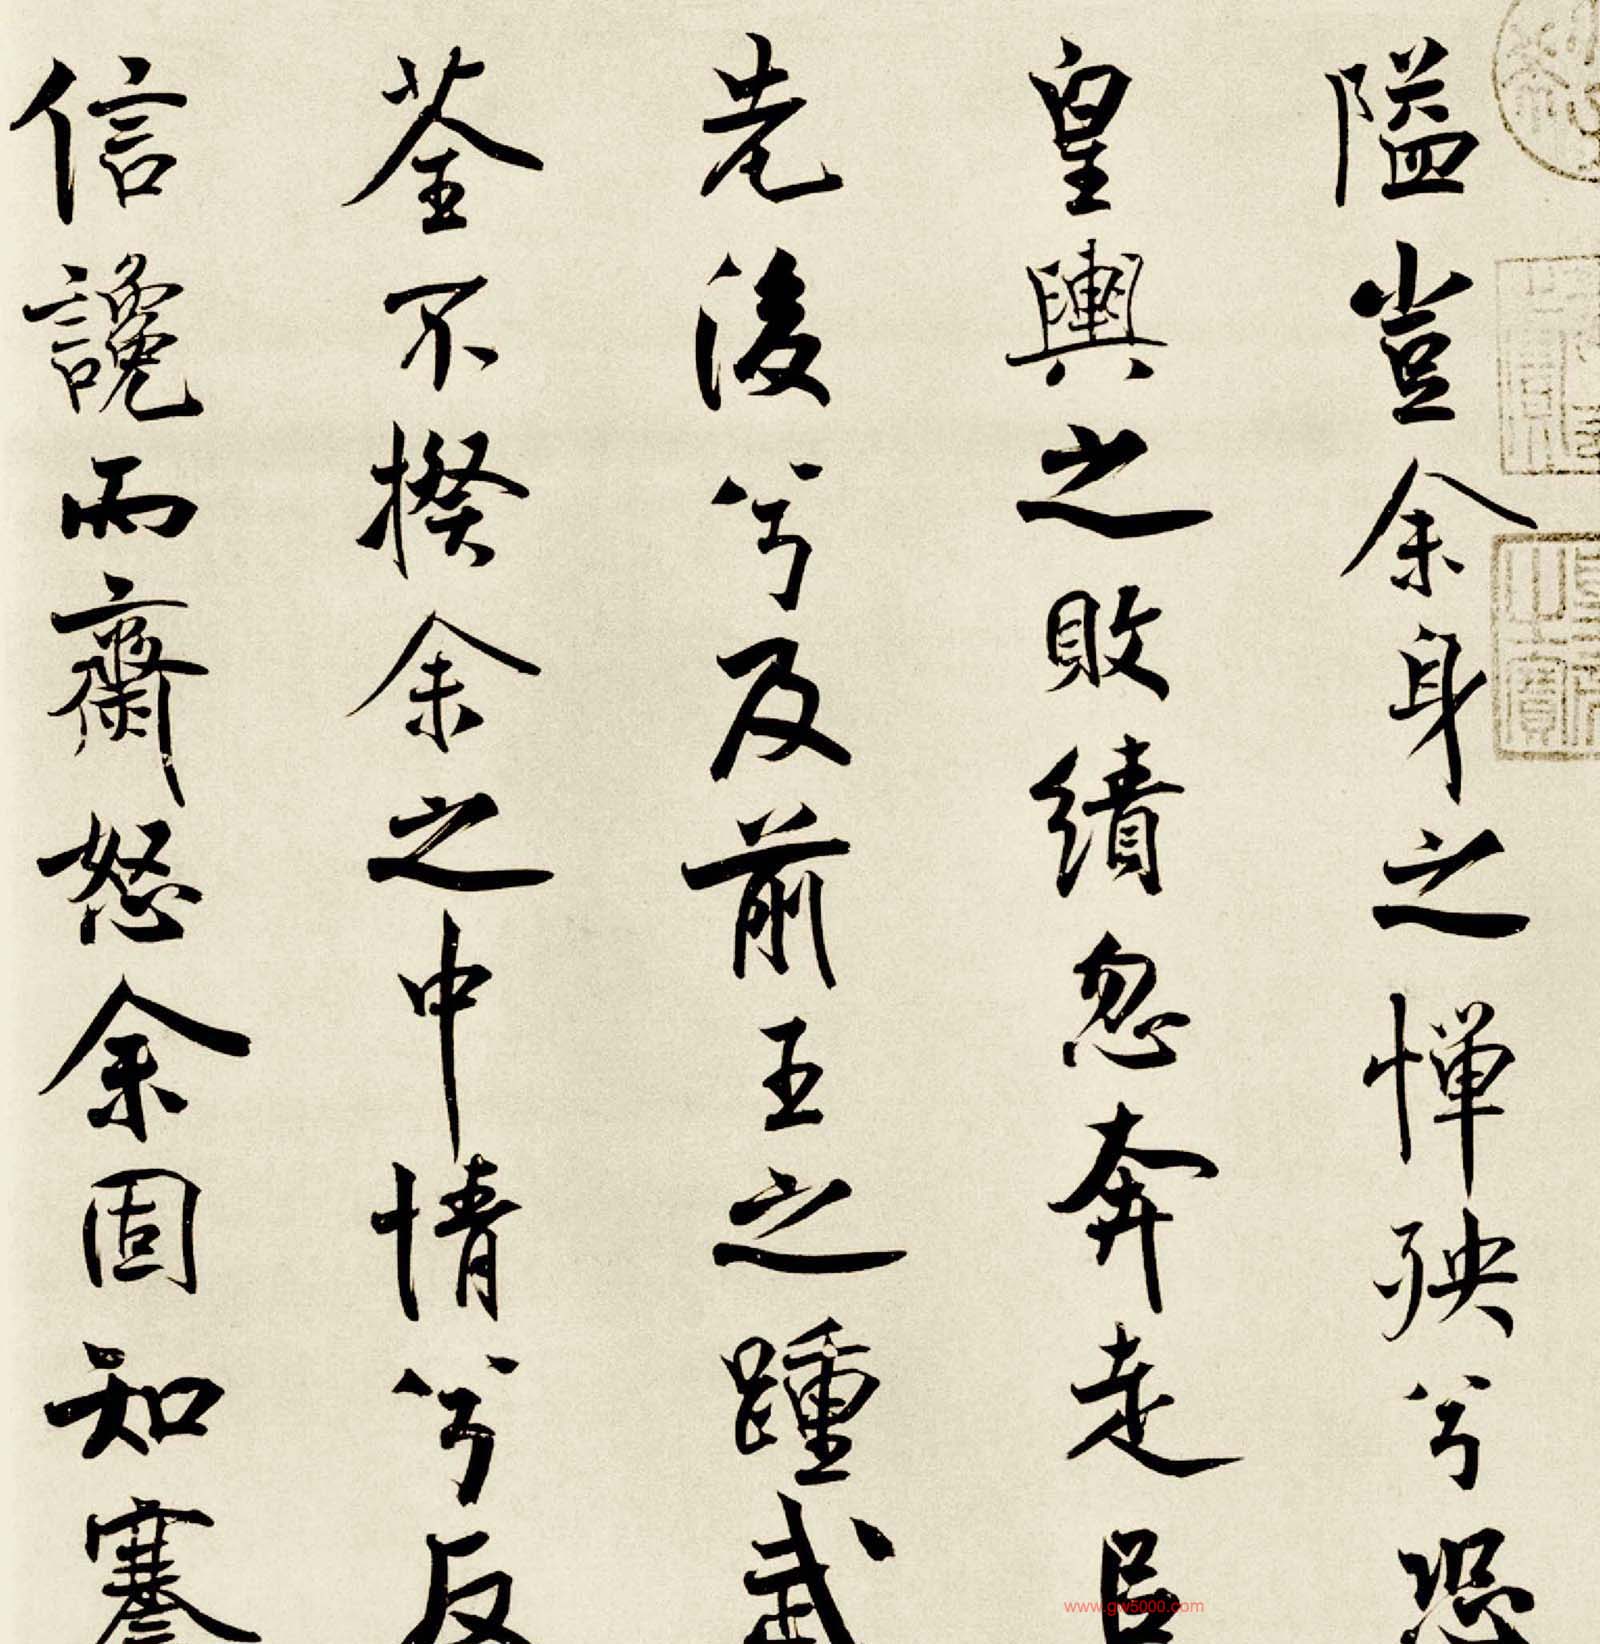 隘豈余身之憚殃兮恐
皇輿之敗績忽奔走
先後兮及前王之踵武
荃不揆余之中情兮反
信讒而齌怒余固知謇
www.gw5000.com